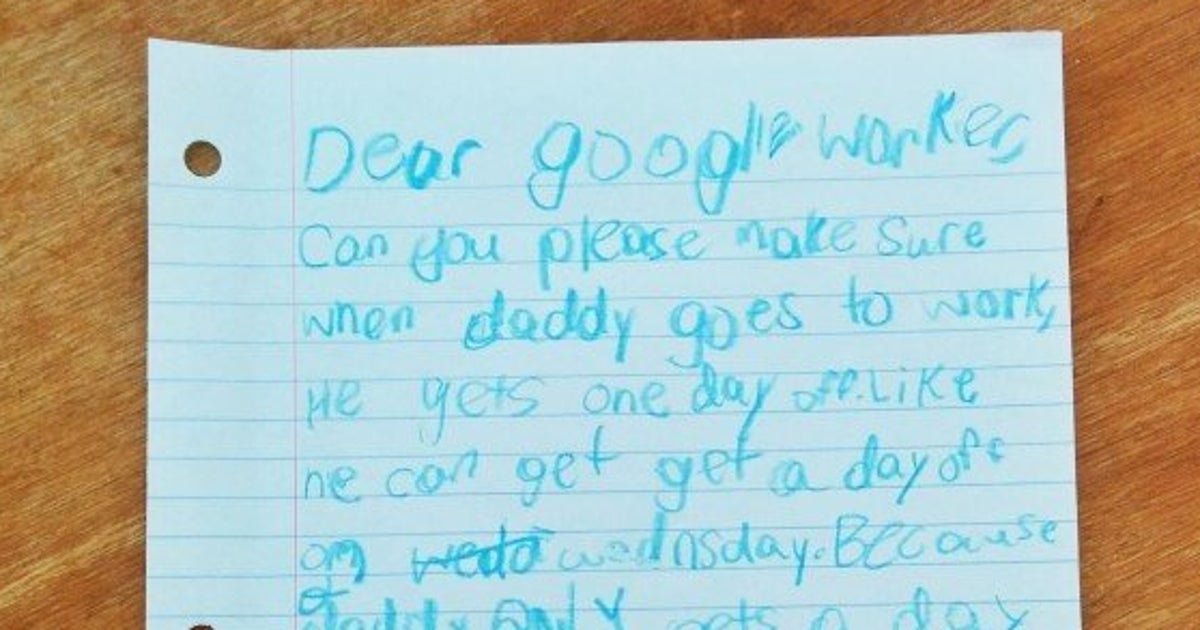 Dear google worker,
Can you please make sure
when daddy goes to work,
He gets one day off. Like
he can get get a day off
on wednsday. Because
daddy ONLY gets a day